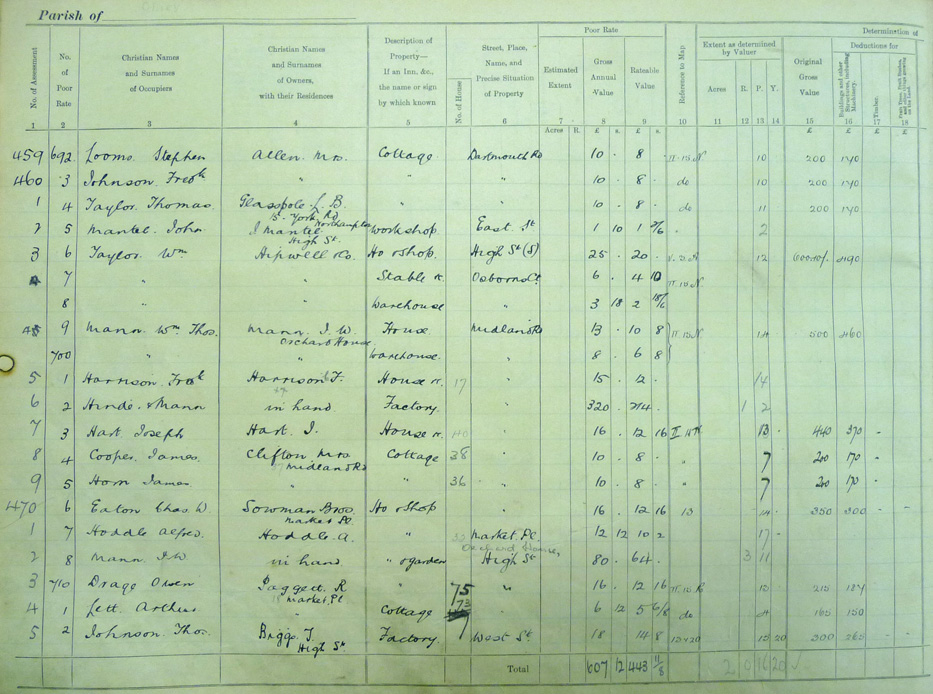 Parish of
Poor Rate
Determination of
No. of Assessment
No. of Poor Rate
Christian Names and Surnames of Occupiers
Christian Names and Surnames of Owners, with their Residences
Description of Property— If an Inn, &c., the name or sign by which known
No. of House
Street, Place, Name, and Precise Situation of Property
Estimated Extent
Gross Annual Value
Rateable Value
Reference to Map
Extent as determined by Valuer
Original Gross Value
Deductions for
Buildings and other Structures, including Machinery.
Timber.
Fruit Trees, Fruit Bushes, and other things growing on the Land
Acres R. P. Y.
1 2 3 4 5 6 7 8 9 10 11 12 13 14 15 16 17 18
Acres R. £ s. £ s. £ £ £ £
459 692 Looms Stephen Allen Mrs. Cottage Dartmouth Rd 10 . 8 . 10 200 170
460 3 Johnson Fredk " " " 10 . 8 . do 10 200 170
1 4 Taylor Thomas Glasspole L. B. " " 10 . 8 . do 11 200 170
York Rd Northampton
2 5 Mantel John J Mantel Workshop East St 1 10 1 2
High St.
3 6 Taylor Wm Hipwell &Co. Ho &Shop High St (S) 25 . 20 . 12
4 7 " " Stable &c. Osborns Ct 6 . 4 10
8 " " Warehouse " 3 18 2
9 Mann Wm Thos. Mann J. W. House Midland Rd 13 . 10 8 14 500 460
Orchard House
700 " " Warehouse " 8 . 6 8
5 1 Harrison Fredk Harrison F. House &c. 17 " 15 . 12 . 14
6 2 Hinde & Mann in hand Factory " 320 . 214 . 1 2
7 3 Hart Joseph Hart J. House &c. 40 " 16 . 12 16 13 440 370
8 4 Cooper James Clifton Mrs Cottage 38 " 10 . 8 . " 7 200 170
Midland Rd
9 5 Horn James " " 36 " 10 . 8 . " 7 200 170
470 6 Eaton Chas. W. Sowman Bros. Ho &Shop " 16 . 12 16 15 14 350 300
Market Pl.
1 7 Hoddle Alfred Hoddle A. " Market Pl. 12 12 10 2 17
Orchard House,
2 8 Mann J.W. in hand " &garden High St 80 . 64 . 3 11
3 710 Drage Olsen Paggett R " 75 " 16 . 12 16 13 215 187
Market Pl
4 1 Lett Arthur " Cottage 73 " 6 12 5 6/8 do 4 165 150
5 2 Johnson Thos. Briggs T. Factory West St 18 14 8 15 20 300 265
High St
Total 607 12 443 11/8 2 0 16 20